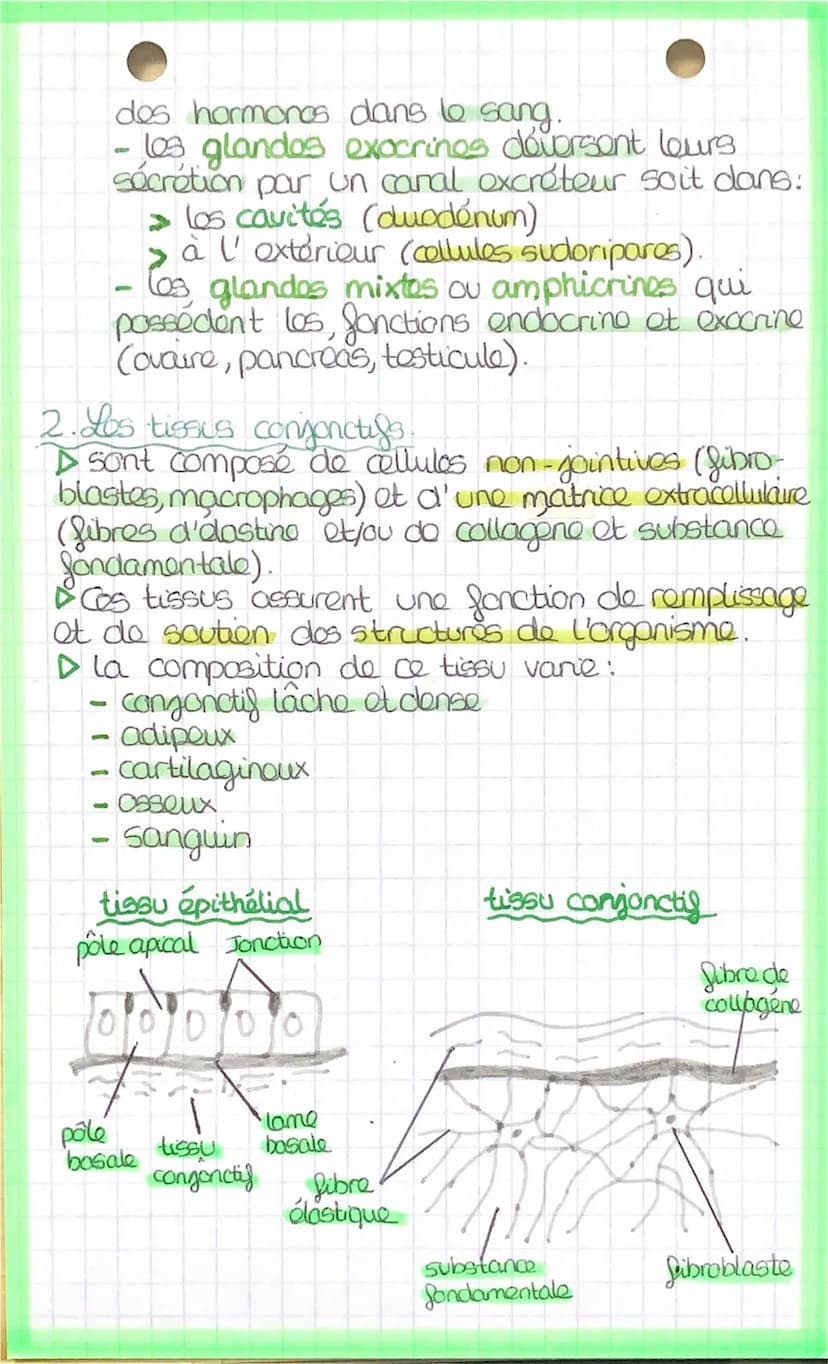 des hormones dans le sang.
- les glandes exocrines déversent leurs
sécrétion par un canal excréteur soit dans:
> les cavités (duodénum)
> à l'extérieur (cellules sudoripares).
- les glandes mixtes ou amphicrines qui
possèdent les fonctions endocrine et exocrine
(ovaire, pancréas, testicule).
2. Les tissus conjonctifs.
▷ sont composé de cellules non-jointives (fibro-
blastes, macrophages) et d'une matrice extracellulaire
(fibres d'élastine et/ou de collagène et substance
fondamentale).
▷ Ces tissus assurent une fonction de remplissage
et de soutien des structures de l'organisme.
▷ la composition de ce tissu varie:
- conjonctif lâche et dense
- adipeux
- cartilagineux
- osseux
- sanguin
tissu épithélial
pôle apical Jonction
pôle
basale
tissu
conjonctif
lame
basale
tissu conjonctif
fibre de
collagène
fibre
élastique
substance
fondamentale
fibroblaste